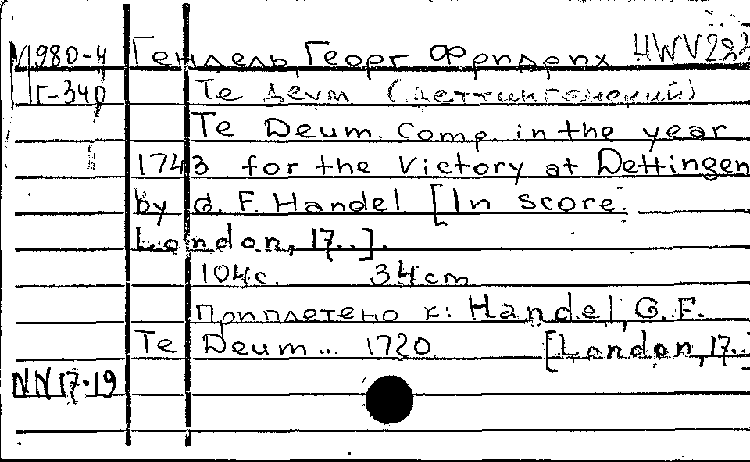 М980-4 Гендель, Георг Фридрих HWV283
Г-340 Те деум (Деттингенский)
Te Deum. Comp. in the year
1743 for the Victory at Dettingen
by G. F. Handel [In score.
London, 17..].
104с. 34cm
Приплетено к: Handel, G. F.
Te Deum... 1720. [London, 17..]
NN17-19